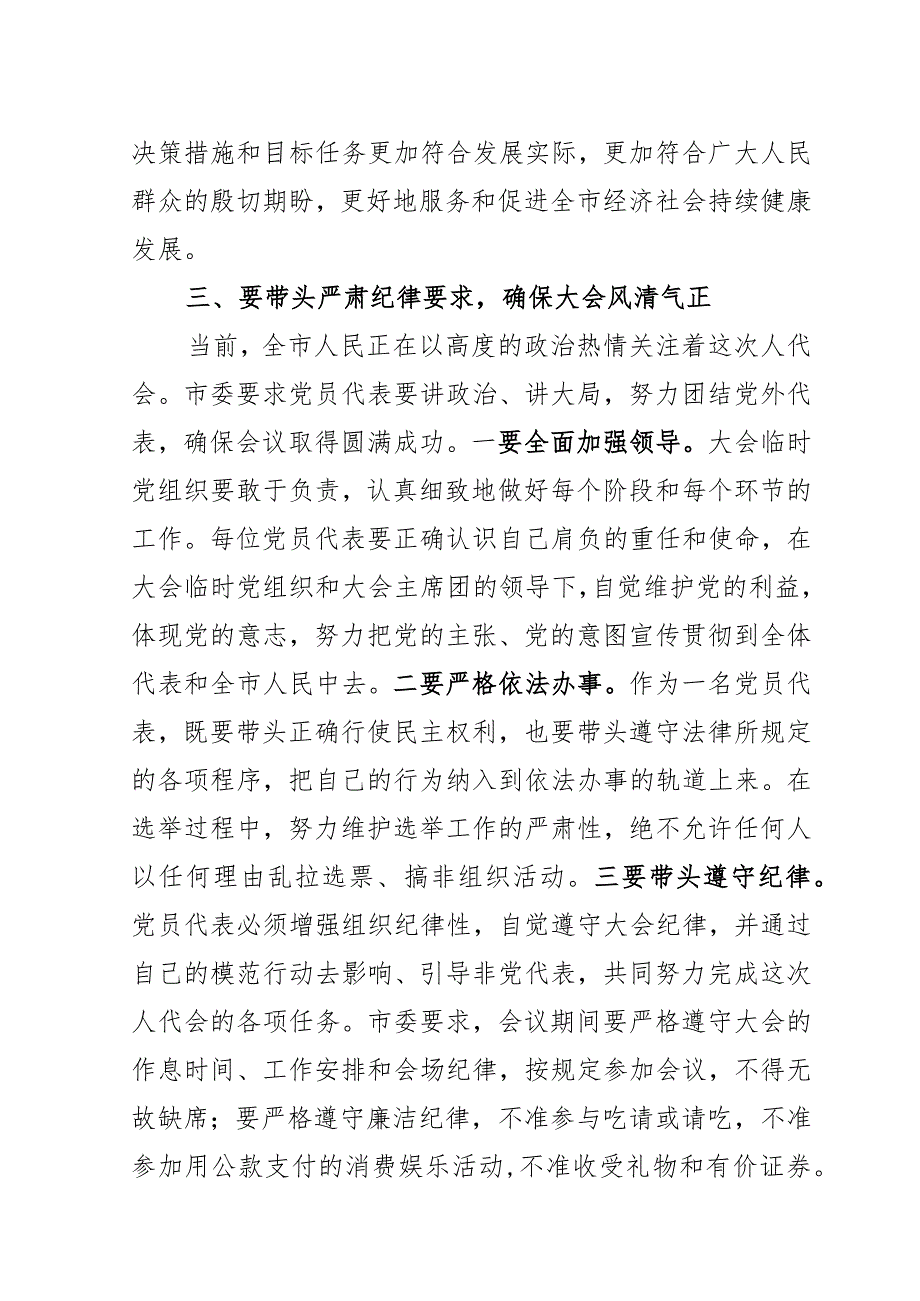 决策措施和目标任务更加符合发展实际，更加符合广大人民
群众的殷切期盼，更好地服务和促进全市经济社会持续健康
发展。
三、要带头严肃纪律要求，确保大会风清气正
当前，全市人民正在以高度的政治热情关注着这次人代
会。市委要求党员代表要讲政治、讲大局，努力团结党外代
表，确保会议取得圆满成功。一要全面加强领导。大会临时
党组织要敢于负责，认真细致地做好每个阶段和每个环节的
工作。每位党员代表要正确认识自己肩负的重任和使命，在
大会临时党组织和大会主席团的领导下，自觉维护党的利益，
体现党的意志，努力把党的主张、党的意图宣传贯彻到全体
代表和全市人民中去。二要严格依法办事。作为一名党员代
表，既要带头正确行使民主权利，也要带头遵守法律所规定
的各项程序，把自己的行为纳入到依法办事的轨道上来。在
选举过程中，努力维护选举工作的严肃性，绝不允许任何人
以任何理由乱拉选票、搞非组织活动。三要带头遵守纪律。
党员代表必须增强组织纪律性，自觉遵守大会纪律，并通过
自己的模范行动去影响、引导非党代表，共同努力完成这次
人代会的各项任务。市委要求，会议期间要严格遵守大会的
作息时间、工作安排和会场纪律，按规定参加会议，不得无
故缺席；要严格遵守廉洁纪律，不准参与吃请或请吃，不准
参加用公款支付的消费娱乐活动,不准收受礼物和有价证券。